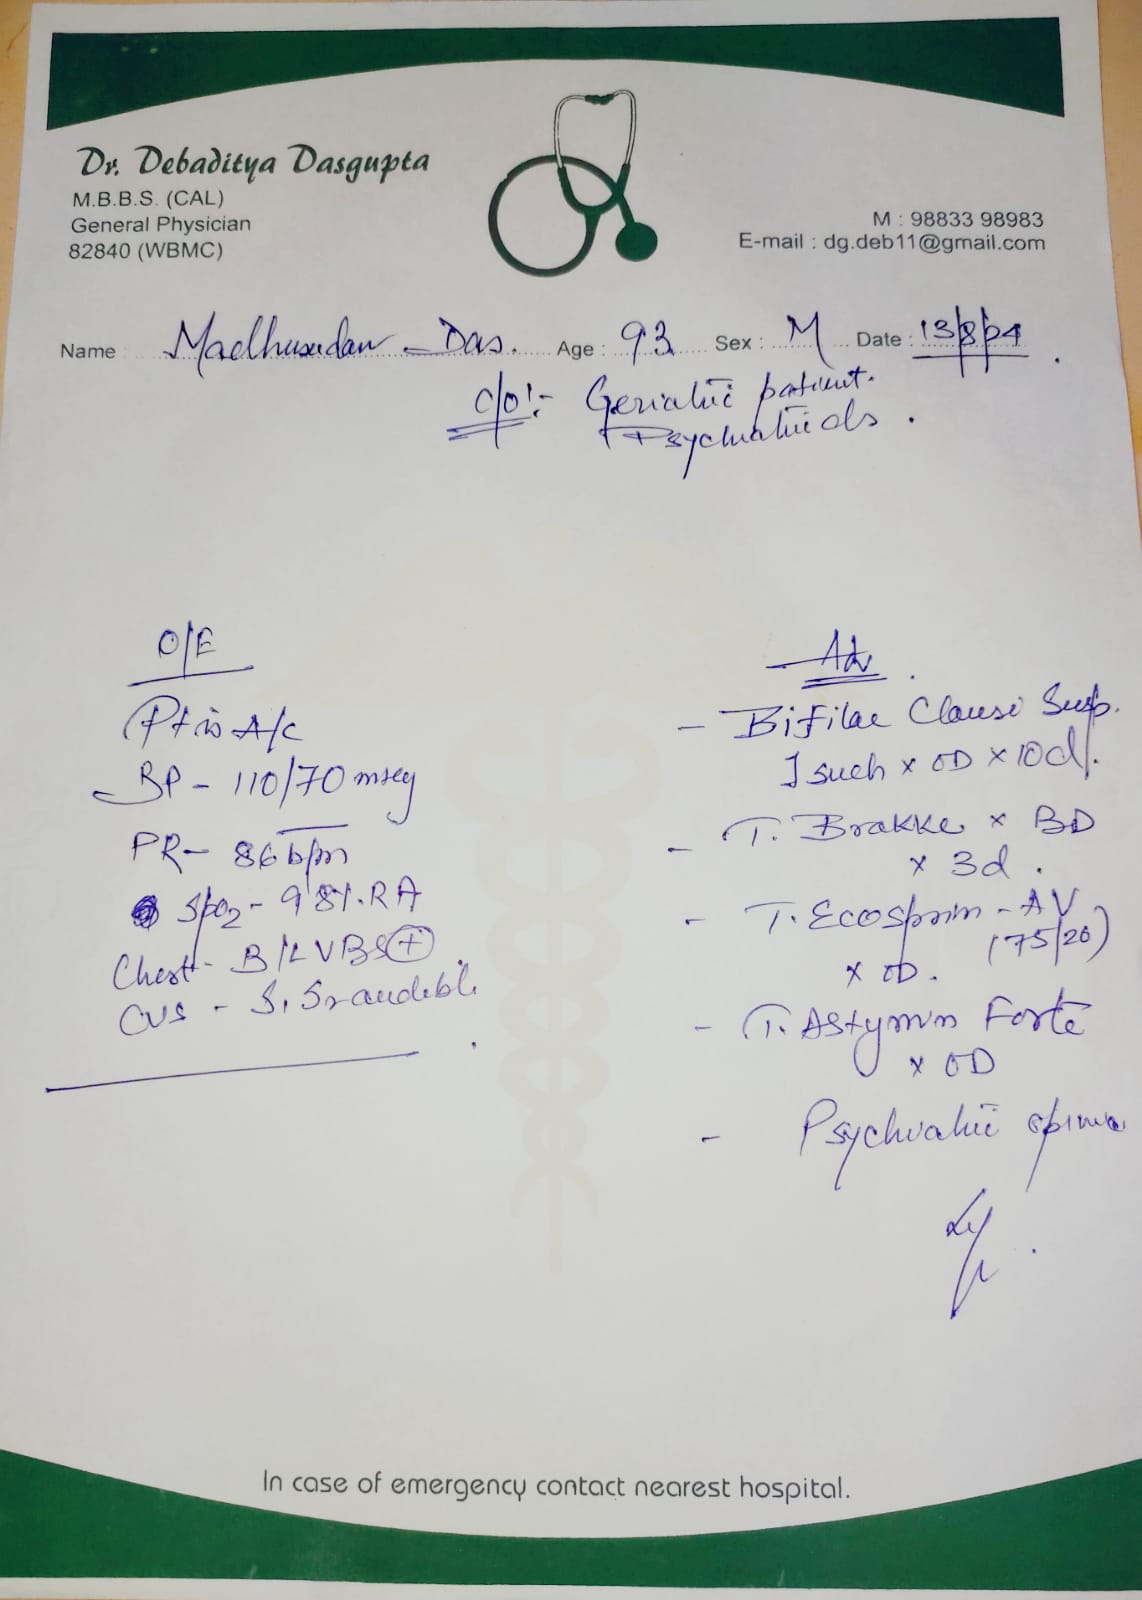 Dr. Debaditya Dasgupta
M.B.B.S. (CAL)
General Physician
82840 (WBMC)
M : 98833 98983
E-mail : dg.deb11@gmail.com
Name Madhusudan Das. Age : 93 Sex : M Date : 13/8/24
c/o:- Geriatric patient.
O/E
Pt is A/c
BP - 110/70 mmHg
PR - 86 bpm
SpO2 - 98%. RA
Chest - B/L VBS +
CVS - S1 S2 audible
Adv
- Bifilac Clausi Susp.
OD x 10d.
- T. Brakke x BD
x 3d.
- T. Ecosprin - AV
(75/20)
x OD.
- T. Astymin Forte
x OD
- Psychiatric
In case of emergency contact nearest hospital.